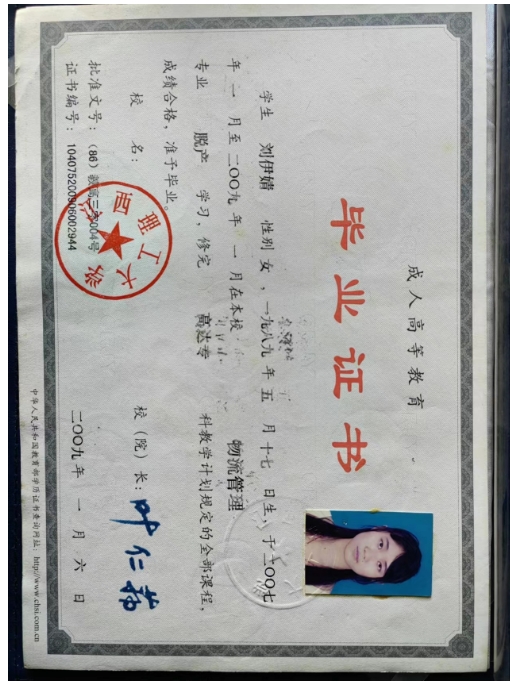 成人高等教育
毕业证书
学生 刘伊婧 性别 女 ，一九八九 年 五 月 十七 日生，于 二〇〇七
年 一 月至 二〇〇九 年 一 月在本校 物流管理
专业 脱产 学习，修完 高达专 科教学计划规定的全部课程，
成绩合格，准予毕业。
校 名： 校（院）长：叶仁荪
批准文号：（86）教高三字004号
证书编号：104075200906002944
二〇〇九 年 一 月 六 日
中华人民共和国教育部学历证书查询网址：http://www.chsi.com.cn